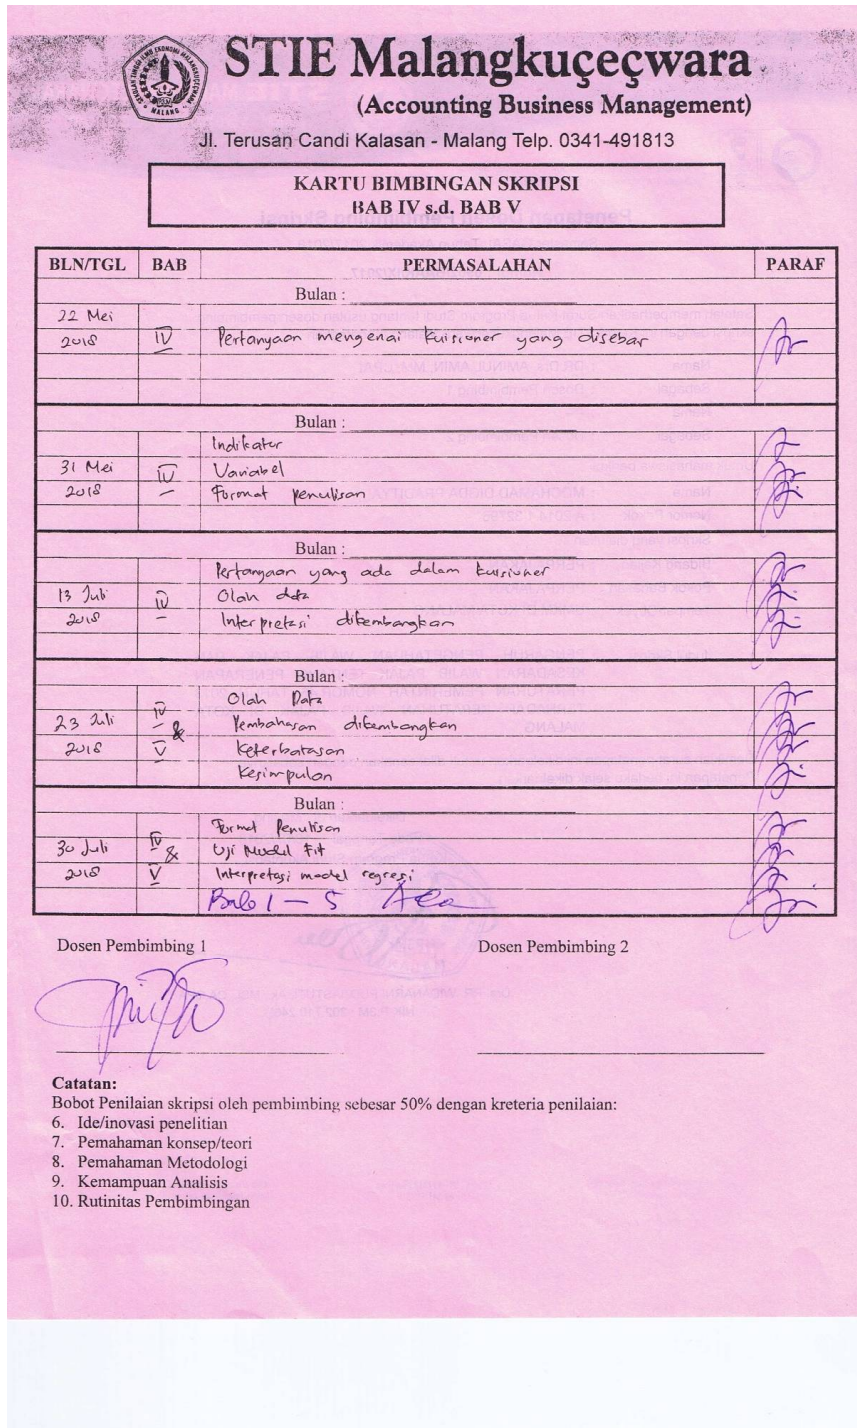 STIE Malangkuçeçwara
(Accounting Business Management)
Jl. Terusan Candi Kalasan - Malang Telp. 0341-491813
KARTU BIMBINGAN SKRIPSI
BAB IV s.d. BAB V
BLN/TGL BAB PERMASALAHAN PARAF
Bulan :
22 Mei
2018 IV Pertanyaan mengenai kuisioner yang disebar
Bulan :
Indikator
31 Mei IV Variabel
2018 Format penulisan
Bulan :
Pertanyaan yang ada dalam kuisioner
13 Juli IV Olah data
2018 Interpretasi dikembangkan
Bulan :
IV Olah Data
23 Juli & Pembahasan dikembangkan
2018 V Keterbatasan
Kesimpulan
Bulan :
Format Penulisan
30 Juli IV & Uji Model Fit
2018 V Interpretasi model regresi
Bab 1 - 5 Acc
Dosen Pembimbing 1 Dosen Pembimbing 2
Catatan:
Bobot Penilaian skripsi oleh pembimbing sebesar 50% dengan kreteria penilaian:
6. Ide/inovasi penelitian
7. Pemahaman konsep/teori
8. Pemahaman Metodologi
9. Kemampuan Analisis
10. Rutinitas Pembimbingan